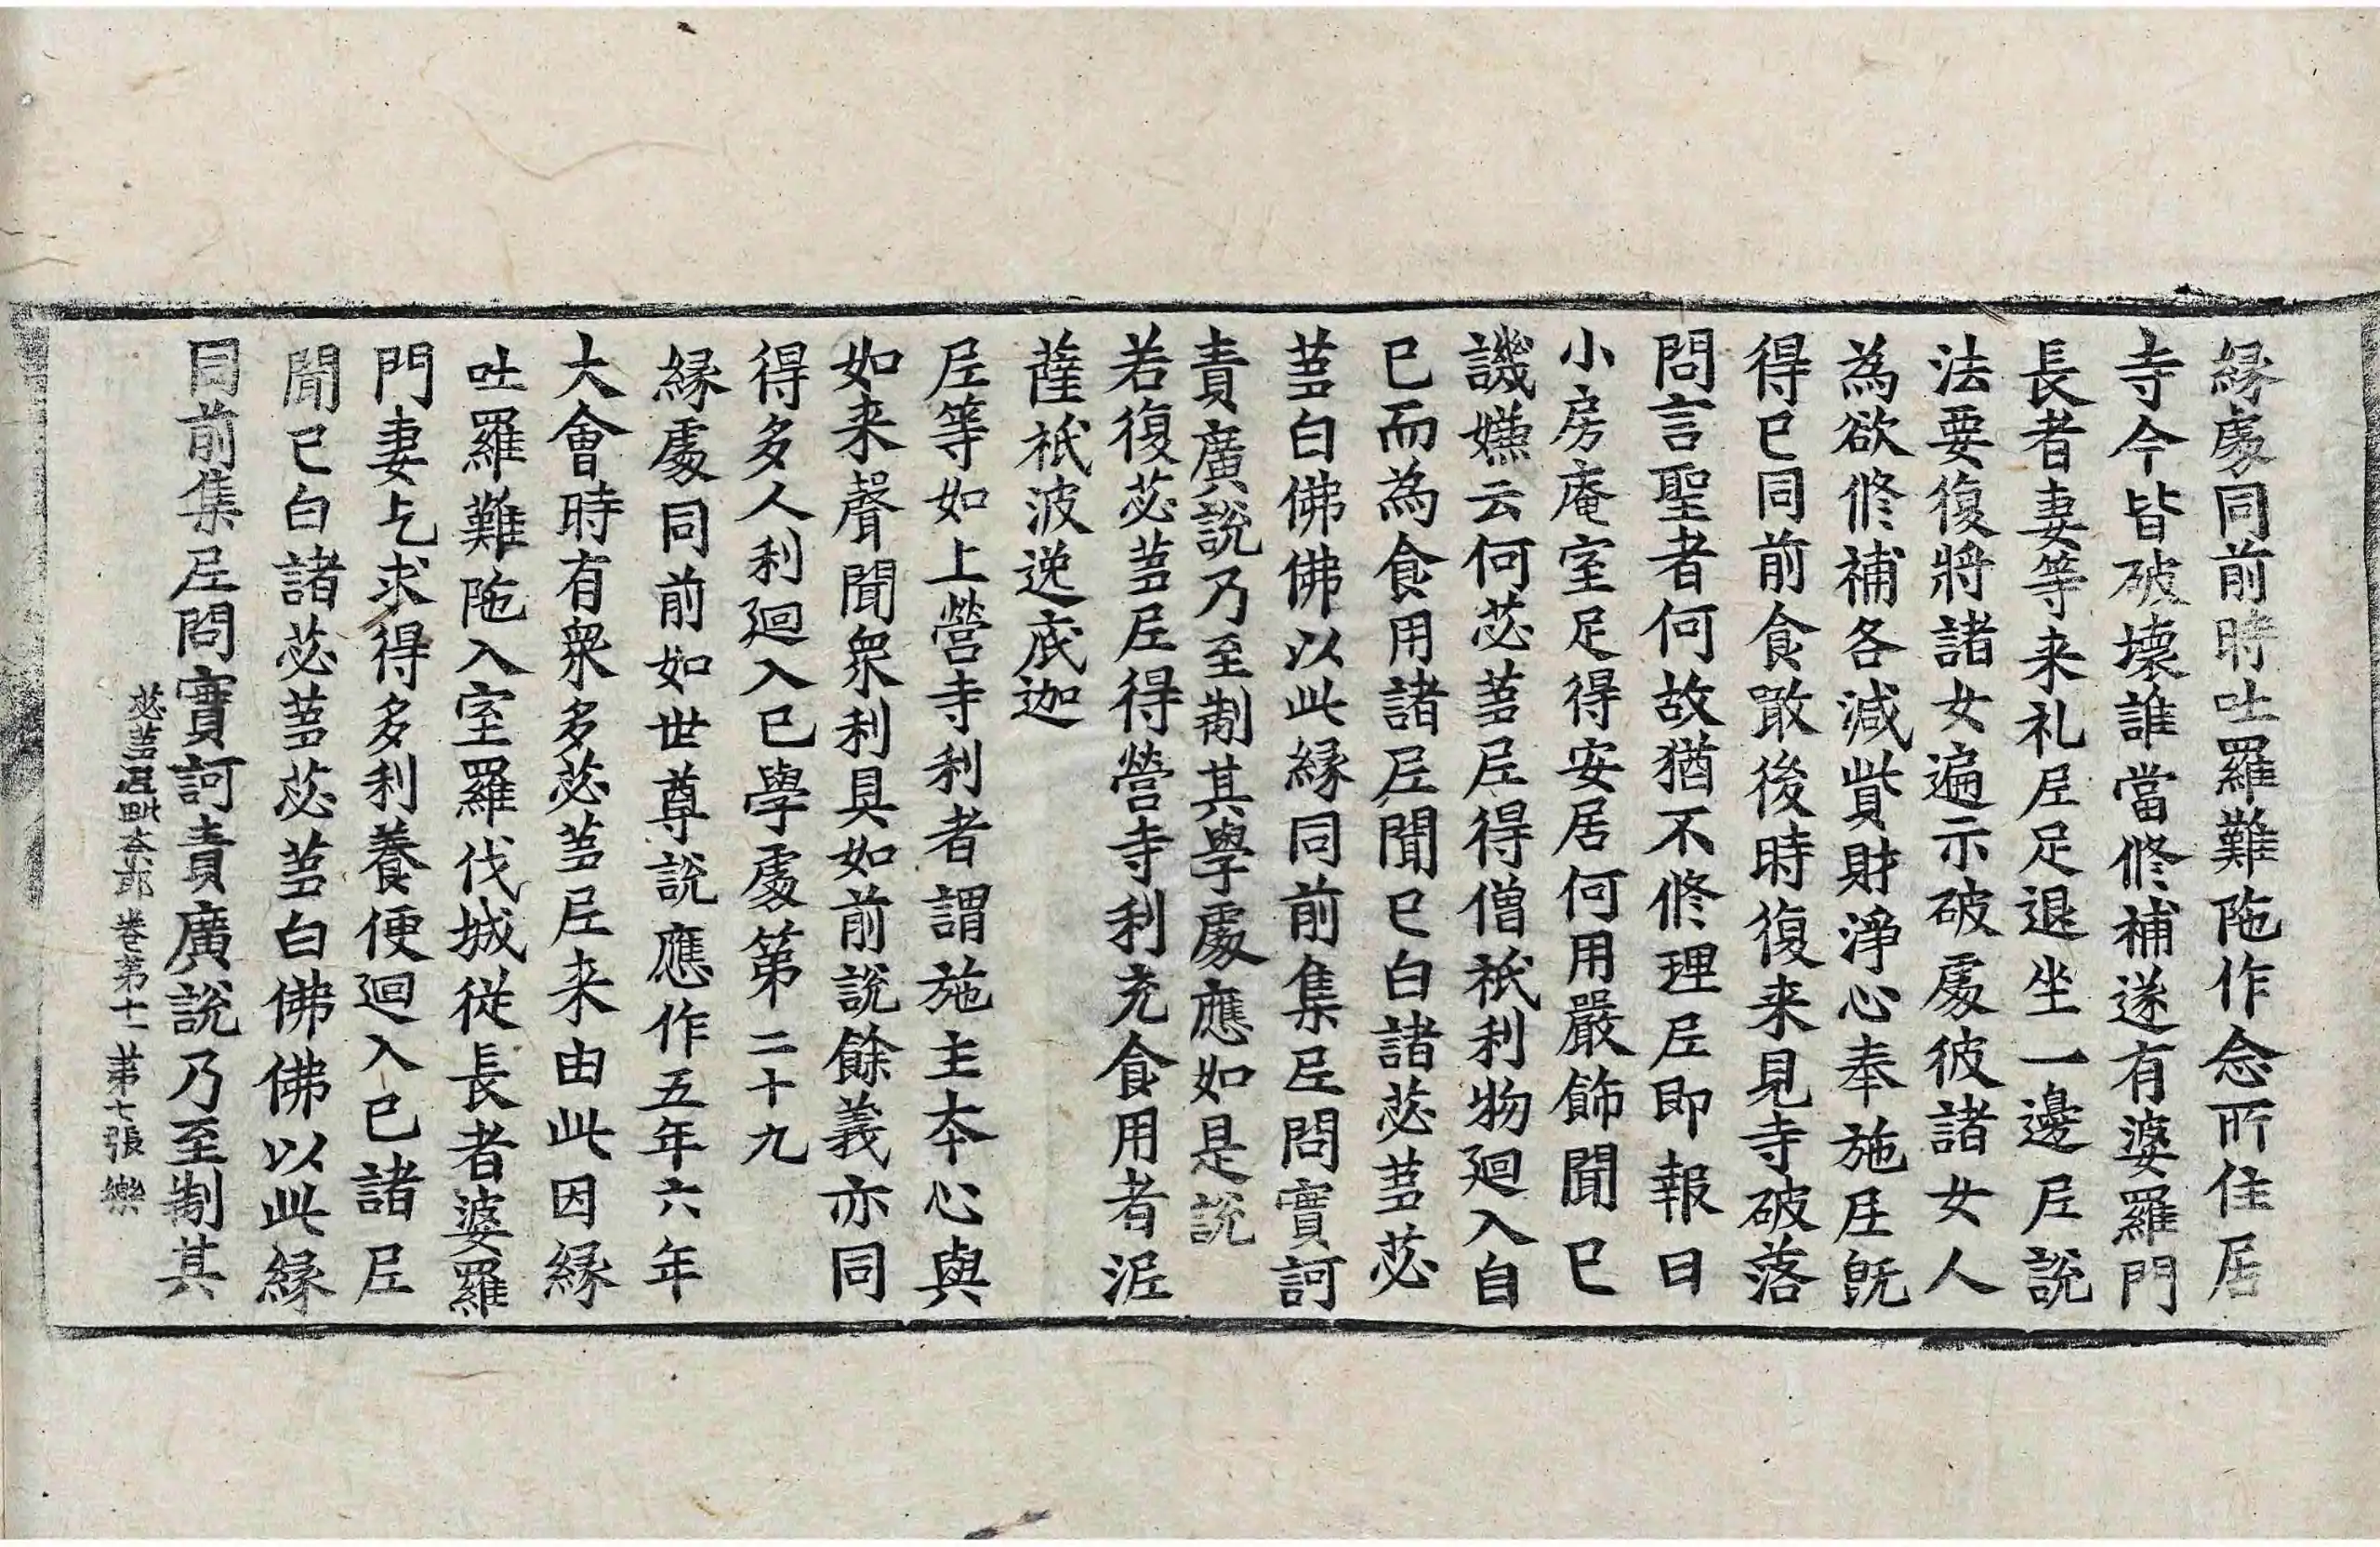 縁處同前時吐羅難陁作念所住居
寺今皆破壞誰當修補遂有婆羅門
長者妻等来礼𡰱足退坐一邊𡰱説
法要復將諸女遍示破處彼諸女人
為欲修補各減貲財淨心奉施𡰱既
得已同前食噉後時復来見寺破落
問言聖者何故猶不修理𡰱即報曰
小房庵室足得安居何用嚴飾聞已
譏嫌云何苾蒭𡰱得僧祇利物迴入自
已而為食用諸𡰱聞已白諸苾蒭苾
蒭白佛佛以此縁同前集𡰱問實訶
責廣説乃至制其學處應如是説
若復苾蒭𡰱得營寺利充食用者泥
薩祇波逸底迦
𡰱等如上營寺利者謂施主本心與
如来聲聞衆利具如前説餘義亦同
得多人利迴入已學處第二十九
縁處同前如世尊説應作五年六年
大會時有衆多苾蒭𡰱来由此因縁
吐羅難陁入室羅伐城従長者婆羅
門妻乞求得多利養便迴入已諸𡰱
聞已白諸苾蒭苾蒭白佛佛以此縁
同前集𡰱問實訶責廣説乃至制其
苾蒭𡰱毗奈耶 卷苐十一 苐七張 樂